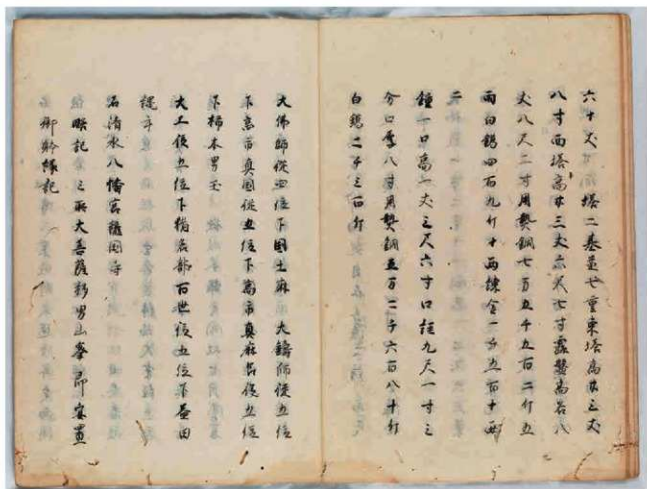 六十丈 塔二基並七重東塔高廿三丈
八寸西塔高廿三丈六尺七寸露盤高各八
丈八尺二寸用熟銅七万五千五百二斤五
両白鑞四百九斤十両錬金一千五百十両
二
鐘一口高一丈三尺六寸口径九尺一寸三
分口厚八寸用熟銅五万二千六百八十斤
白鑞二千三百斤
大佛師従四位下国土麻 大鋳師従五位
下高市真国従五位下高市真麻呂従五位
下柿本男玉
大工従五位下猪名部百世従五位下益田
縄手
石清水八幡宮護国寺
三所大善薩男山峯
御縁記